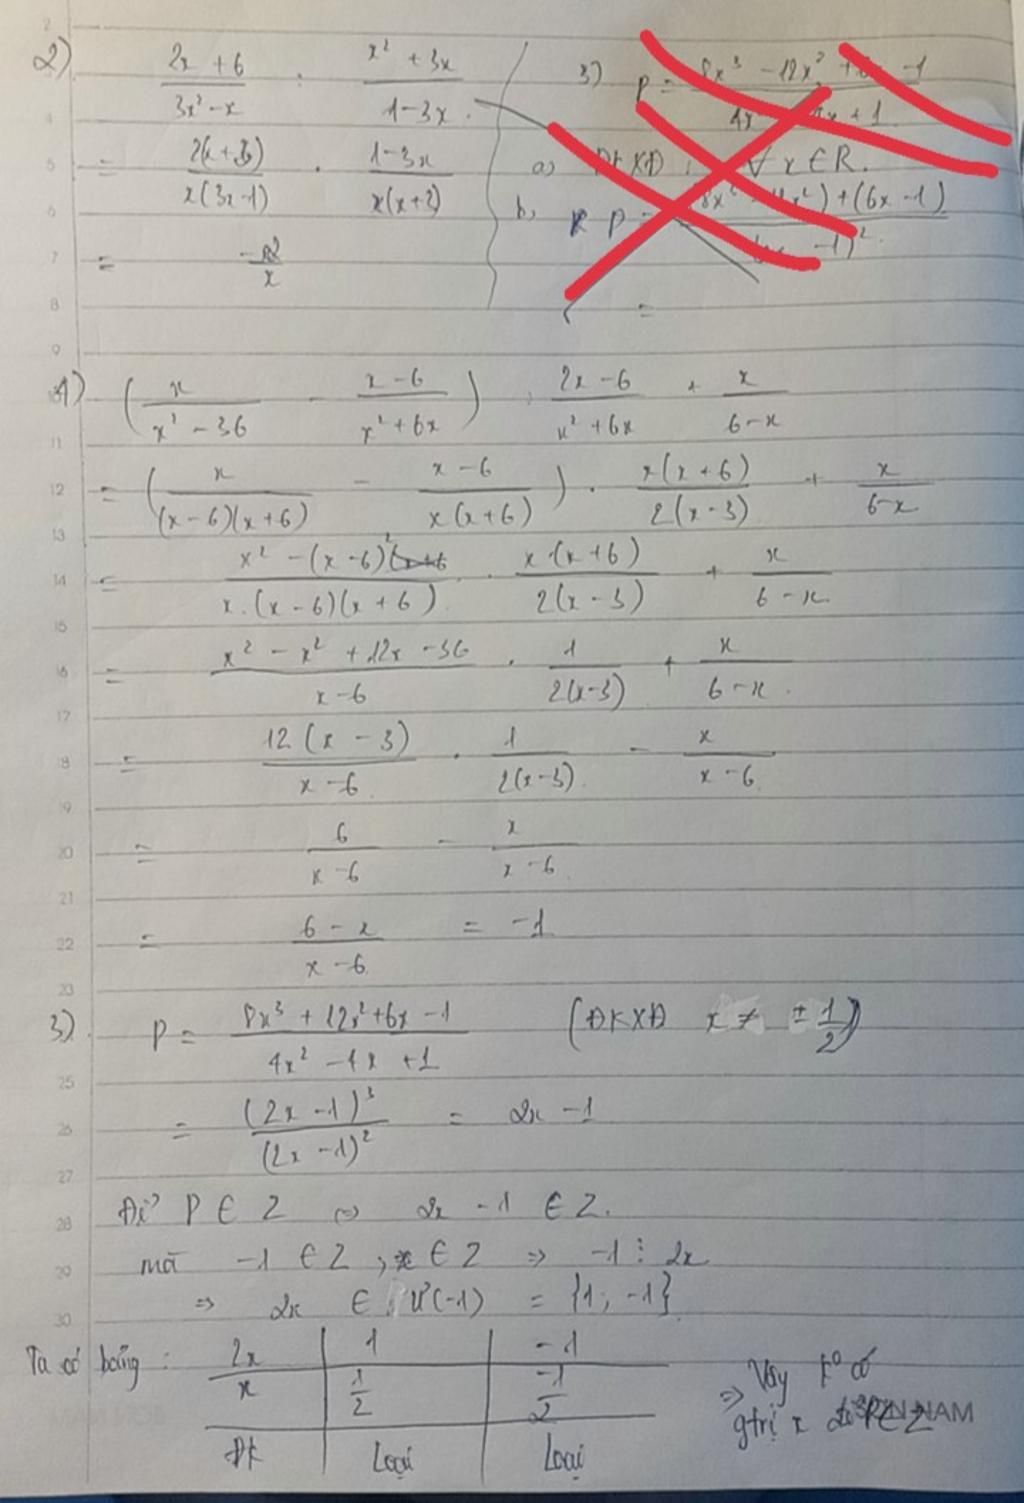 2) \frac{2x + 6}{3x² - x} : \frac{x² + 3x}{1 - 3x}
= \frac{2(x + 3)}{x(3x - 1)} . \frac{1 - 3x}{x(x + 3)}
= \frac{-2}{x}
3) P = \frac{8x³ - 12x² + -1}{4x + 1}
a) ĐKXĐ : ∀ x ∈ R.
b, P = \frac{8x³ ) + (6x - 1)}{- 1)².}
=
4) (\frac{x}{x² - 36} - \frac{x - 6}{x² + 6x}) : \frac{2x - 6}{x² + 6x} + \frac{x}{6 - x}
= (\frac{x}{(x - 6)(x + 6)} - \frac{x - 6}{x(x + 6)}) . \frac{x(x + 6)}{2(x - 3)} + \frac{x}{6 - x}
= \frac{x² - (x - 6)²}{x.(x - 6)(x + 6)} . \frac{x.(x + 6)}{2(x - 3)} + \frac{x}{6 - x}
= \frac{x² - x² + 12x - 36}{x - 6} . \frac{1}{2(x - 3)} + \frac{x}{6 - x}
= \frac{12(x - 3)}{x - 6} . \frac{1}{2(x - 3)} - \frac{x}{x - 6}
= \frac{6}{x - 6} - \frac{x}{x - 6}
= \frac{6 - x}{x - 6} = -1
3) P = \frac{8x³ + 12x² + 6x - 1}{4x² - 4x + 1} (ĐKXĐ x ≠ ± \frac{1}{2})
= \frac{(2x - 1)³}{(2x - 1)²} = 2x - 1
Để P ∈ Z ⇔ 2x - 1 ∈ Z.
mà -1 ∈ Z ; x ∈ Z ⇒ -1 ⋮ 2x
⇒ 2x ∈ Ư(-1) = {1; -1}
Ta có bảng :
2x 1 -1
x \frac{1}{2} \frac{-1}{2}
ĐK Loại Loại
⇒ Vậy k⁰ có
gtrị x để P ∈ Z